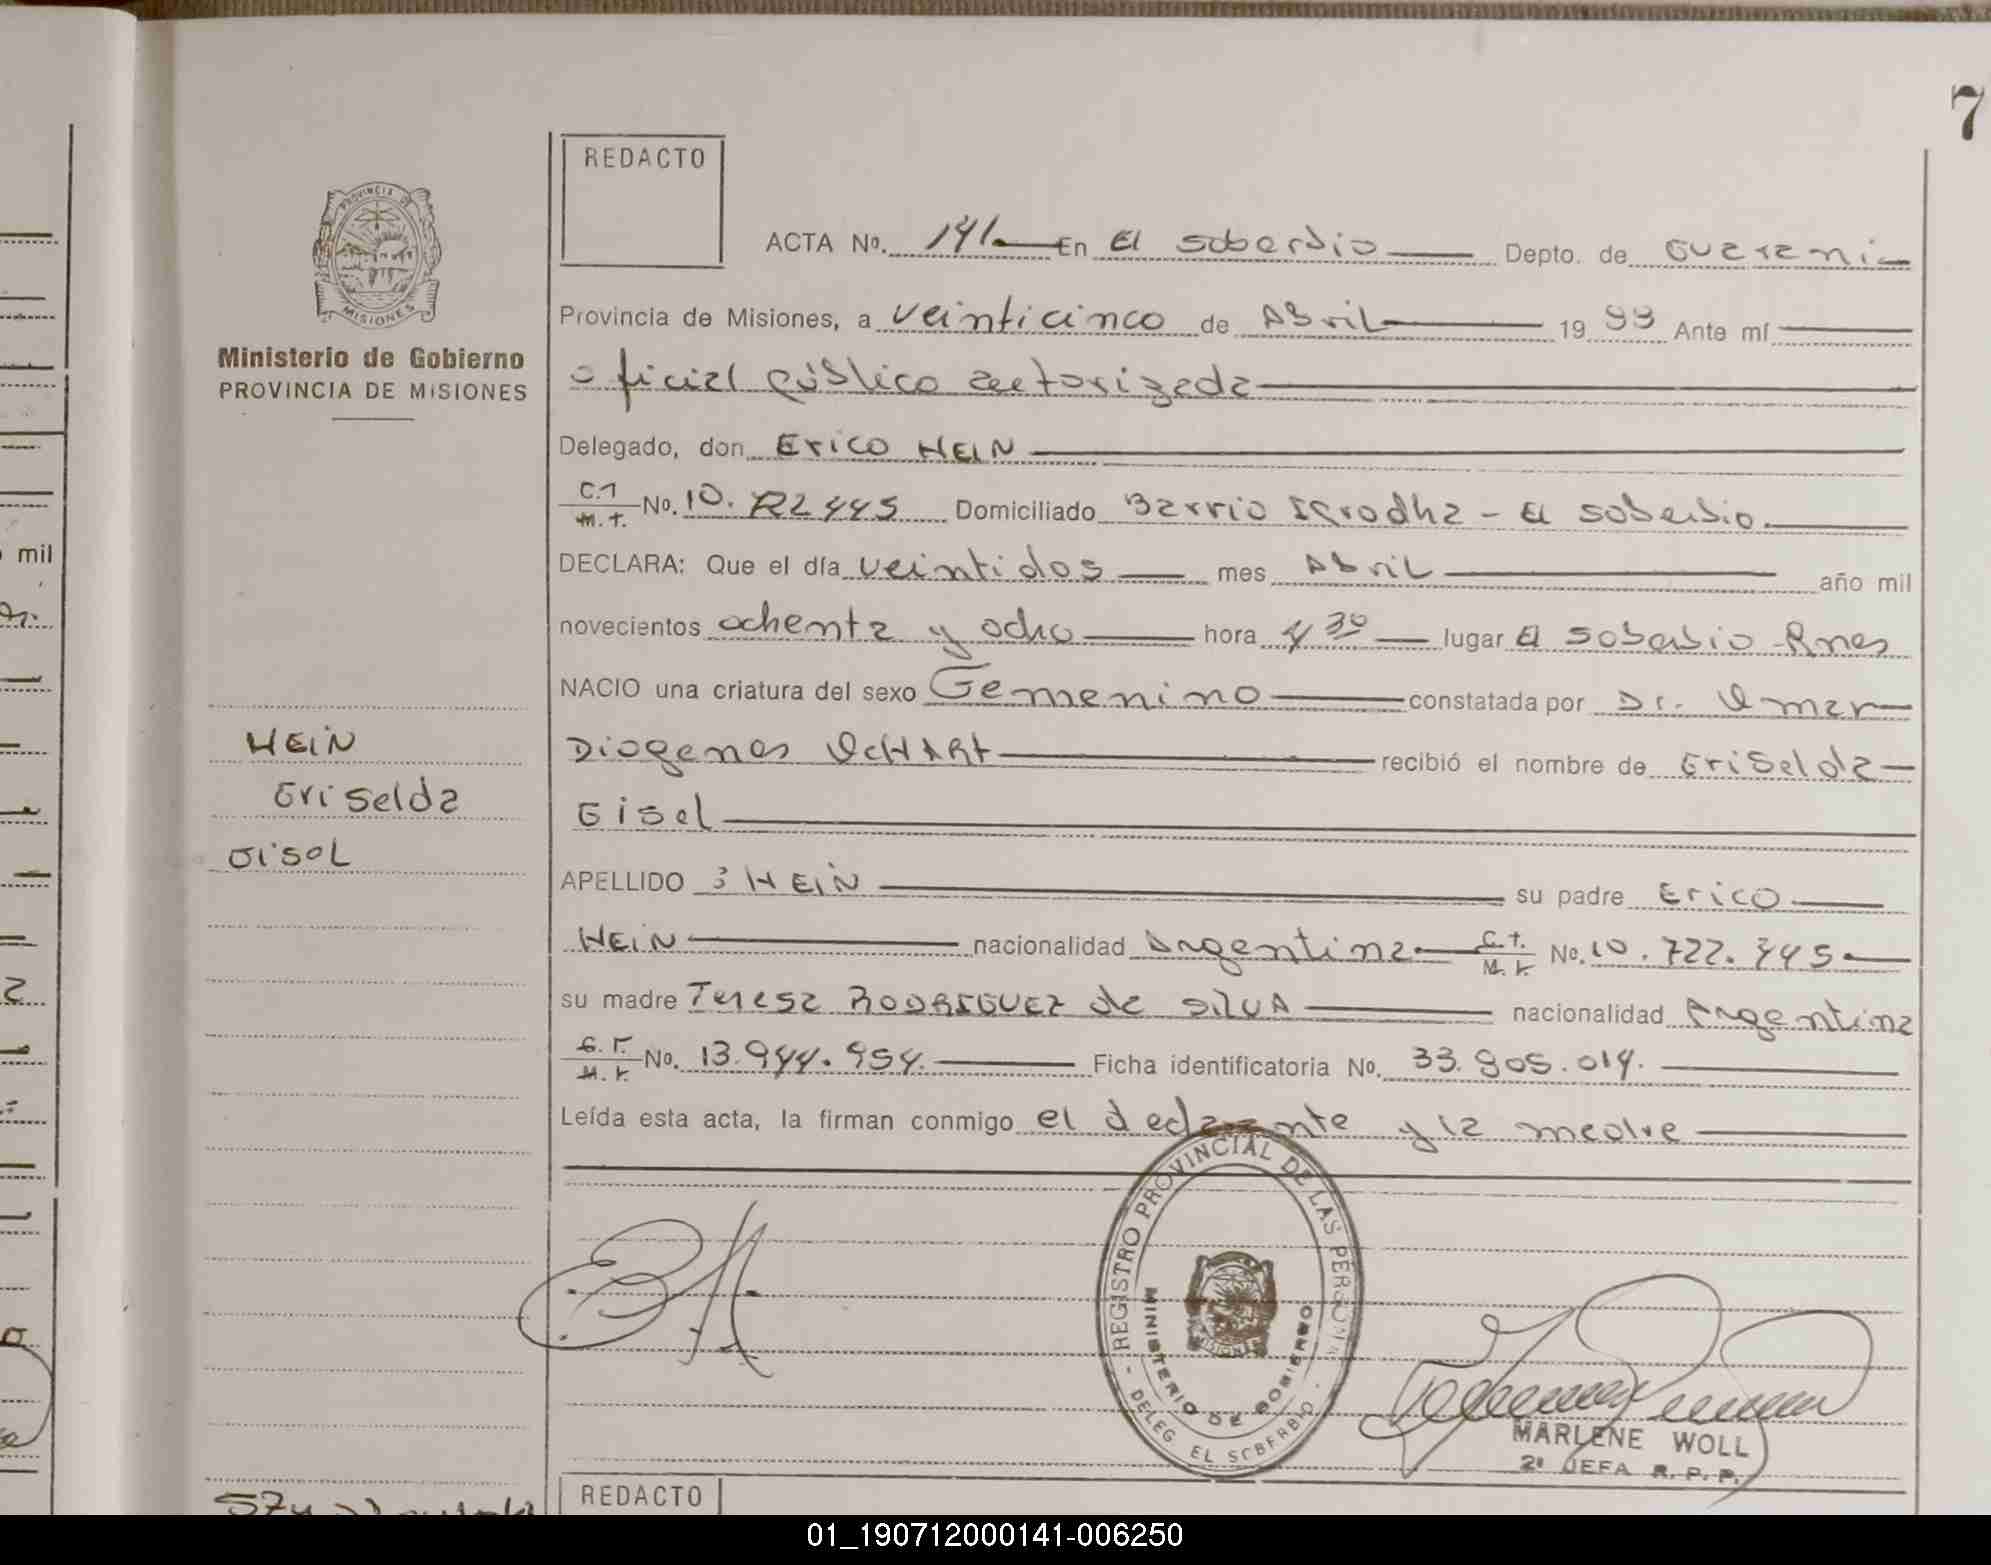 7
REDACTO
PROVINCIA DE
MISIONES
Ministerio de Gobierno
PROVINCIA DE MISIONES
ACTA No. 141 En El Soberbio Depto. de Guarani
Provincia de Misiones, a veinticinco de Abril 19 88 Ante mí
oficial público autorizada
Delegado, don Erico HEIN
C.I M.I. No. 10.722445 Domiciliado Barrio Irrodha - El Soberbio.
DECLARA: Que el día veintidos mes Abril año mil
mil
novecientos ochenta y ocho hora 4 30 lugar El Soberbio - Mnes
NACIO una criatura del sexo Femenino constatada por Dr. Omar
HEIN
Diogenes OCHART recibió el nombre de Griselda
Griselda
Gisel
Gisel
APELLIDO : HEIN su padre Erico
HEIN nacionalidad Argentina C.I. M.I. No. 10.722.445
su madre Teresa RODRIGUEZ de SILVA nacionalidad Argentina
C.I. M.I. No. 13.944.954. Ficha identificatoria No. 33.905.014.
Leída esta acta, la firman conmigo el declarante y la madre
- REGISTRO PROVINCIAL DE LAS PERSONAS
MINISTERIO DE GOBIERNO
MISIONES
- DELEG EL SOBERBIO -
MARLENE WOLL
2ª JEFA R. P. P.
REDACTO
01_190712000141-006250